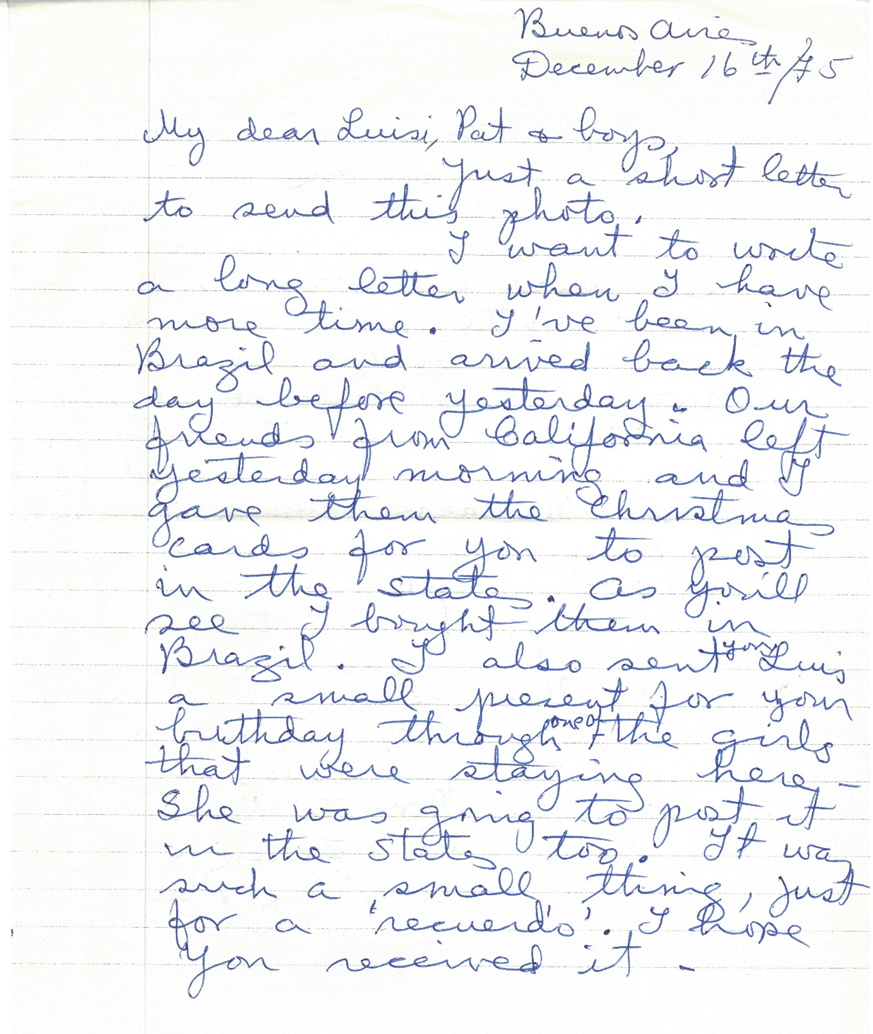 Buenos Aires
December 16th/75
My dear Luisi, Pat & boys,
Just a short letter
to send this photo.
I want to write
a long letter when I have
more time. I've been in
Brazil and arrived back the
day before yesterday. Our
friends from California left
yesterday morning and I
gave them the Christmas
cards for you to post
in the States. As you'll
see I bought them in
Brazil. I also sent you Luis
a small present for your
birthday through one of the girls
that were staying here -
She was going to post it
in the States too. It was
such a small thing, just
for a 'recuerdo'. I hope
you received it -